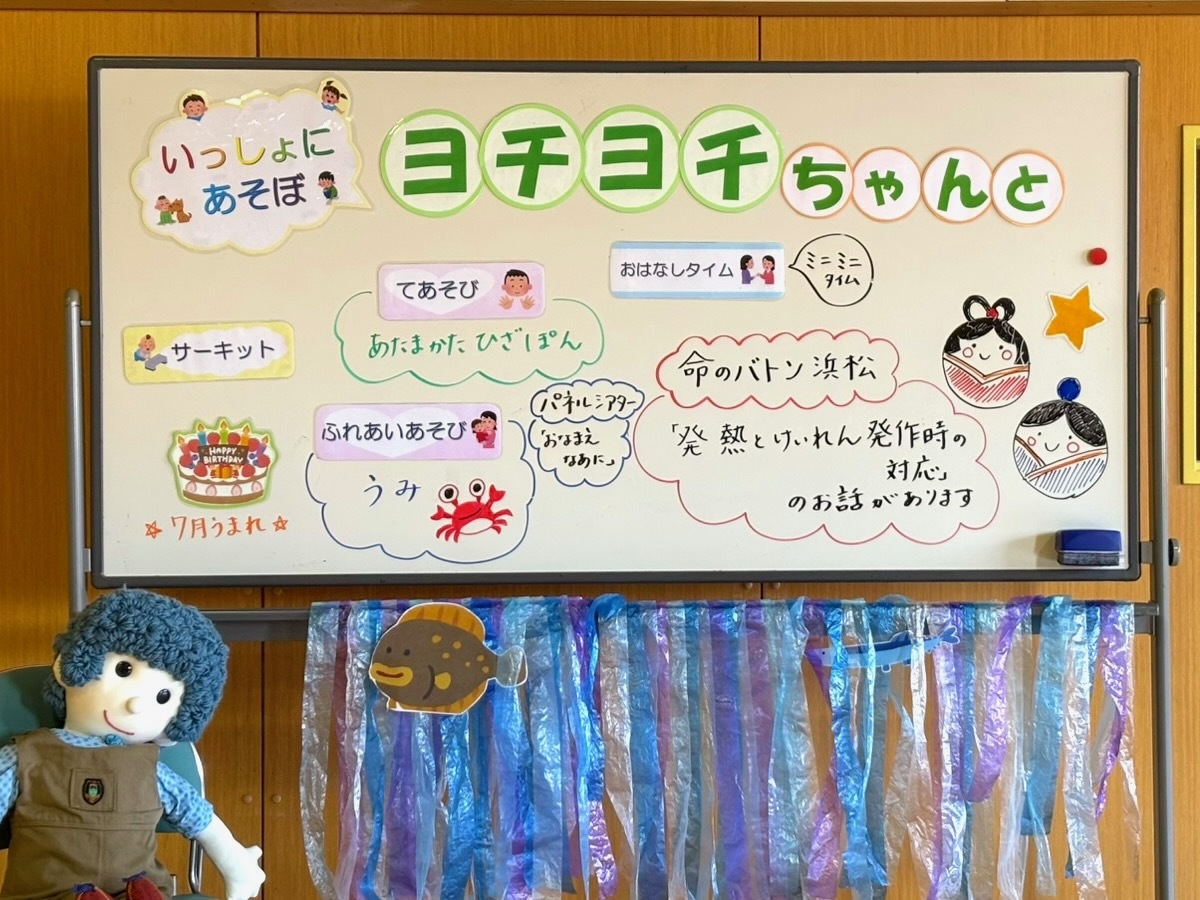 いっしょに
あそぼ
ヨチヨチちゃんと
おはなしタイム
ミニミニ
タイム
てあそび
あたまかたひざぽん
サーキット
命のバトン浜松
「発熱とけいれん発作時の
対応」
のお話があります
ふれあいあそび
うみ
パネルシアター
「おなまえ
なあに」
HAPPY
BIRTHDAY
☆7月うまれ☆